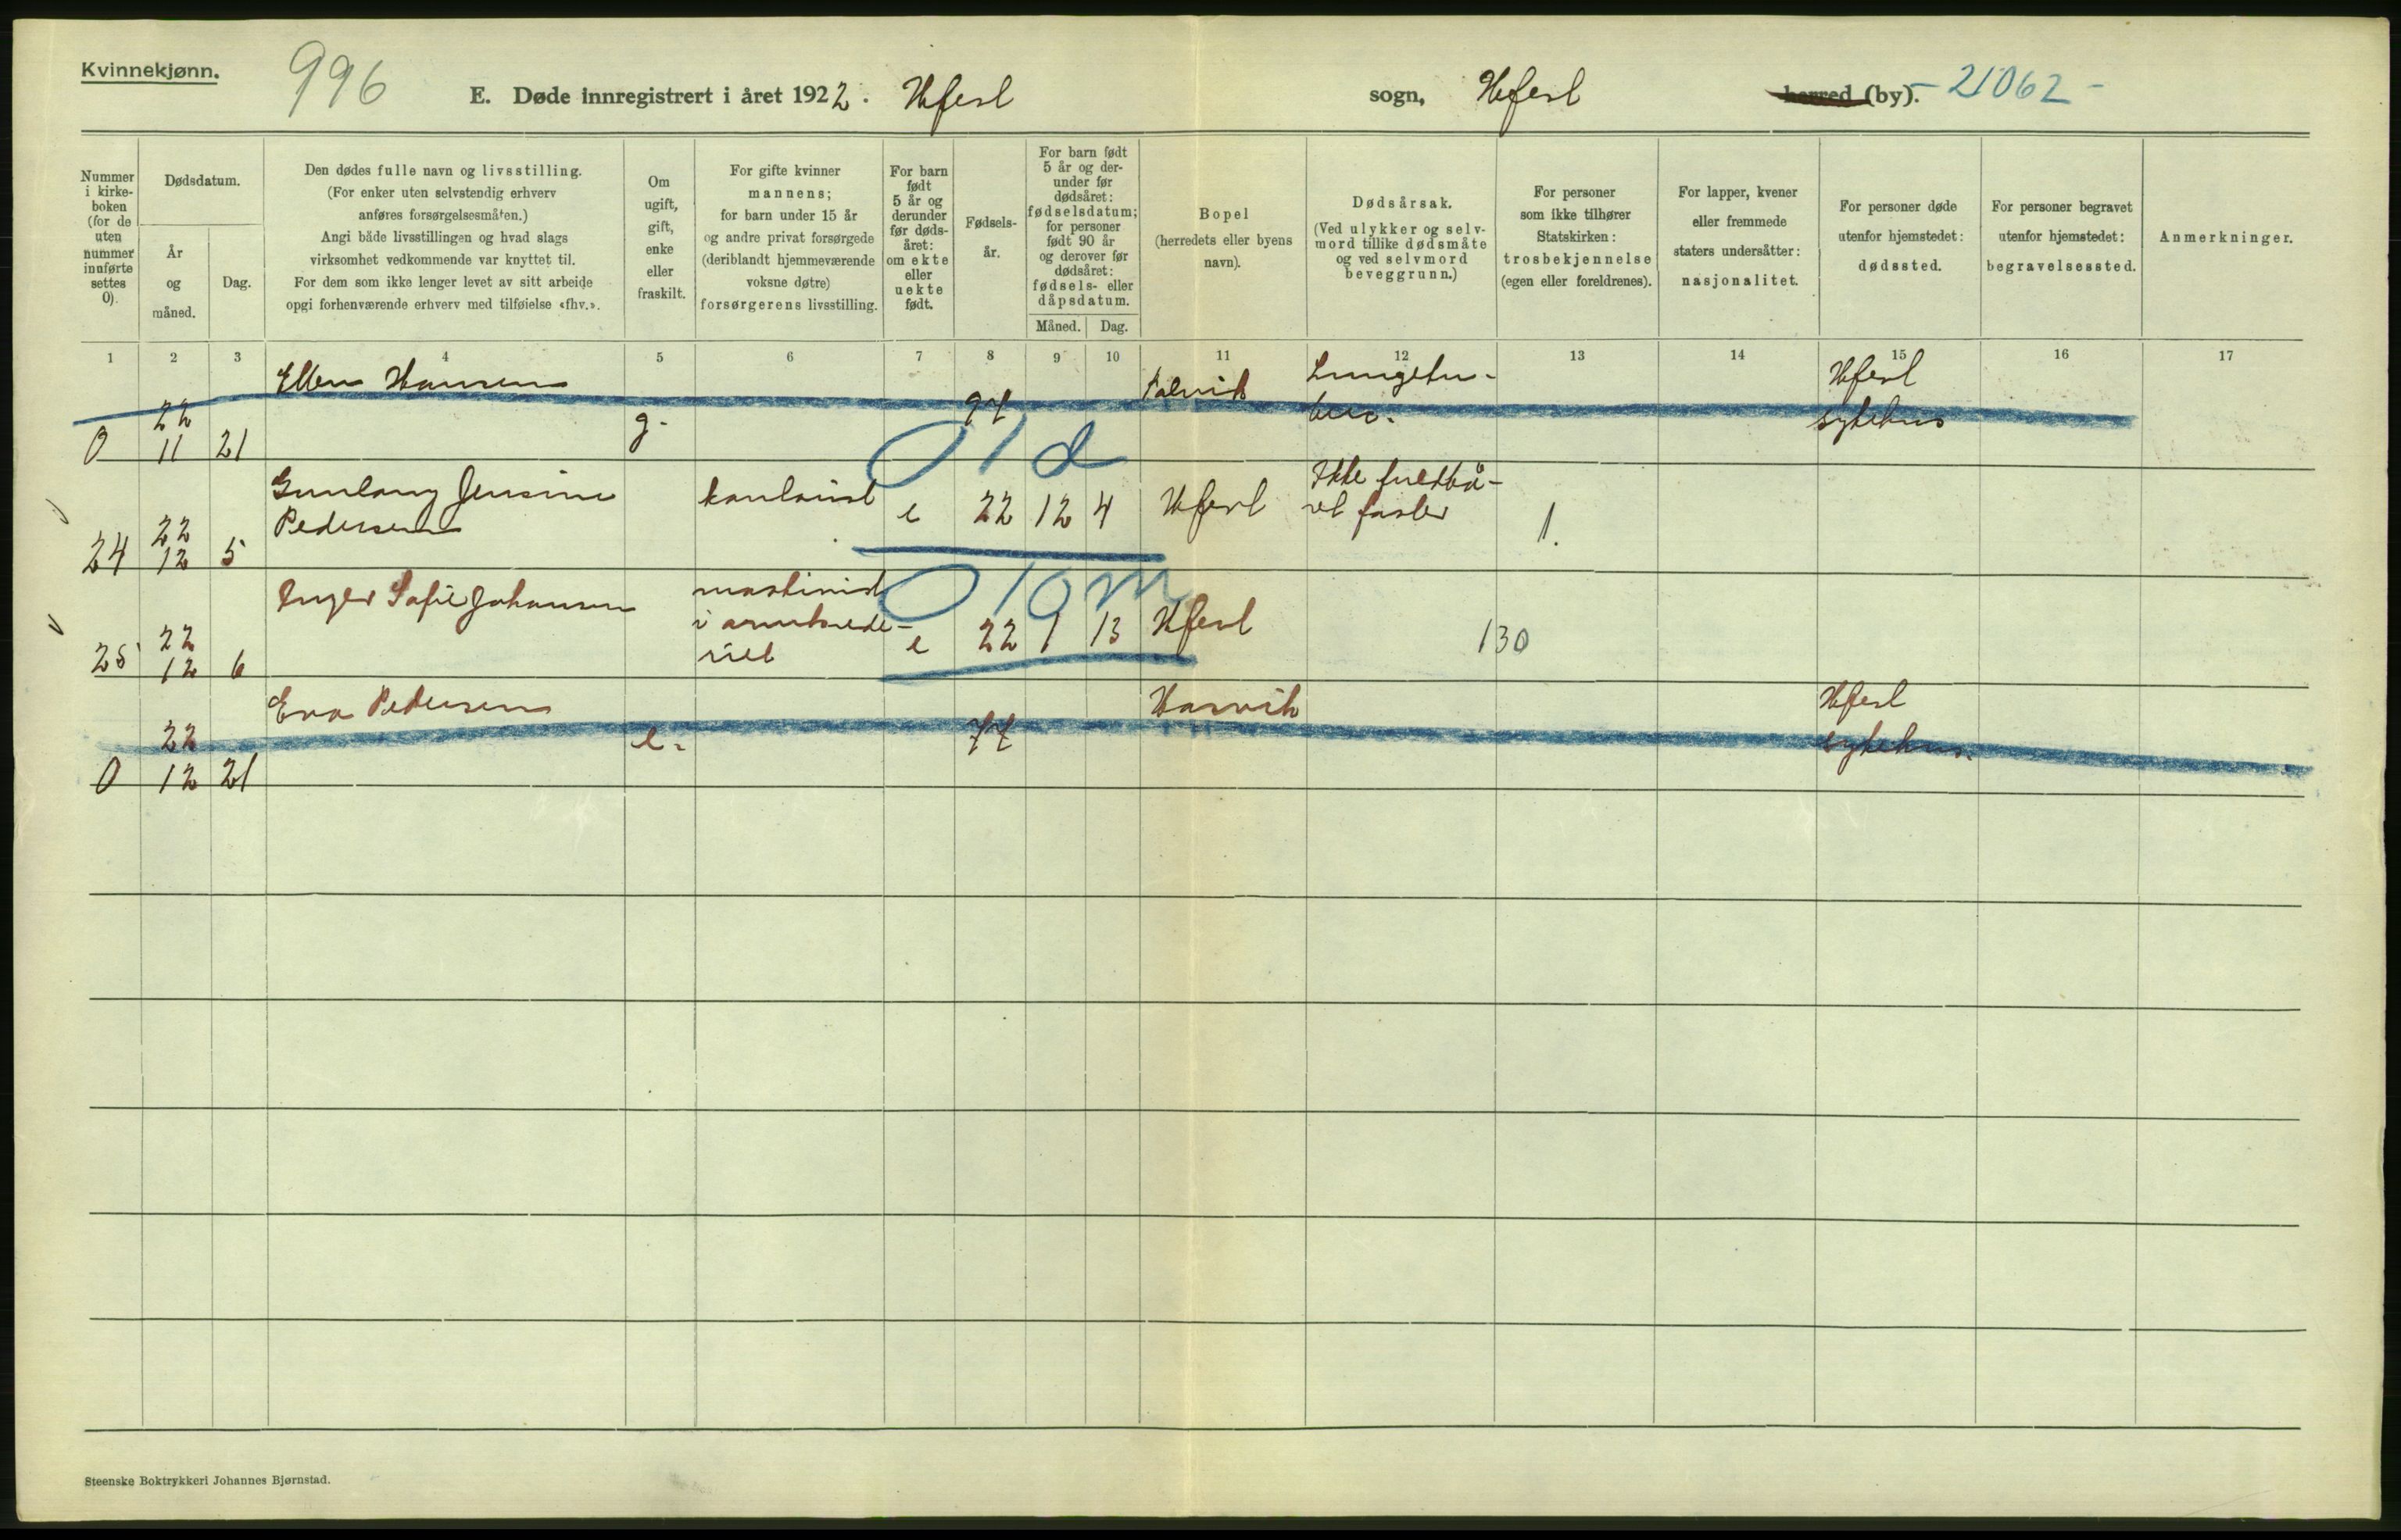 Kvinnekjønn.
996
E. Døde innregistrert i året 1922. Hfest sogn, Hfest herred (by). - 21062 -
Nummer i kirke- boken (for de uten nummer innførte settes 0).
Dødsdatum.
År og måned.
Dag.
Den dødes fulle navn og livsstilling.
(For enker uten selvstendig erhverv
anføres forsørgelsesmåten.)
Angi både livsstillingen og hvad slags
virksomhet vedkommende var knyttet til.
For dem som ikke lenger levet av sitt arbeide
opgi forhenværende erhverv med tilføielse «fhv.».
Om
ugift,
gift,
enke
eller
fraskilt.
For gifte kvinner
mannens;
for barn under 15 år
og andre privat forsørgede
(deriblandt hjemmeværende
voksne døtre)
forsørgerens livsstilling.
For barn
født
5 år og
derunder
før døds-
året:
om ekte
eller
uekte
født.
Fødsels-
år.
For barn født
5 år og der-
under før
dødsåret:
fødselsdatum;
for personer
født 90 år
og derover før
dødsåret:
fødsels- eller
dåpsdatum.
Måned. Dag.
Bopel
(herredets eller byens
navn).
Dødsårsak.
(Ved ulykker og selv-
mord tillike dødsmåte
og ved selvmord
beveggrunn.)
For personer
som ikke tilhører
Statskirken:
trosbekjennelse
(egen eller foreldrenes).
For lapper, kvener
eller fremmede
staters undersåtter:
nasjonalitet.
For personer døde
utenfor hjemstedet:
dødssted.
For personer begravet
utenfor hjemstedet:
begravelsessted.
Anmerkninger.
1 2 3 4 5 6 7 8 9 10 11 12 13 14 15 16 17
Ellen Hansen Talvik Lungetu- Hfest
22 g. 97 berc. sykehus
0 11 21
01d
Gunlaug Jensine kontorist e 22 12 4 Hfest Ikke fuldbå-
Pedersen ret foster 1.
22
24 12 5
010m
Inger Sofie Johansen maskinist
i
22 e 22 1 13 Hfest 130
25 12 6
Eva Pedersen Hasvik Hfest
22 e. 77 sykehus.
0 12 21
Steenske Boktrykkeri Johannes Bjørnstad.